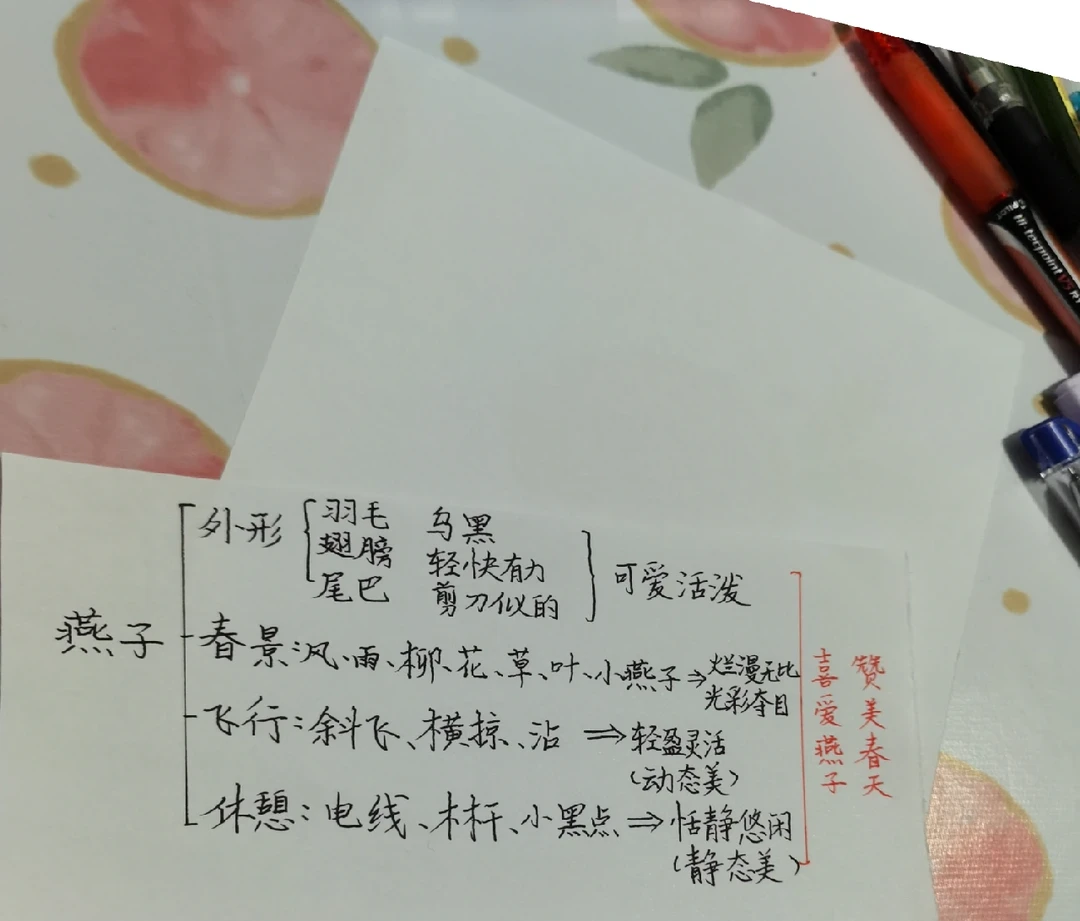 燕子
外形
羽毛 乌黑
翅膀 轻快有力
尾巴 剪刀似的
可爱活泼
春景：风、雨、柳、花、草、叶、小燕子→烂漫无比
光彩夺目
飞行：斜飞、横掠、沾⇒轻盈灵活
（动态美）
休憩：电线、木杆、小黑点⇒恬静悠闲
（静态美）
喜爱燕子
赞美春天
Hi-tecpoint V5 RT